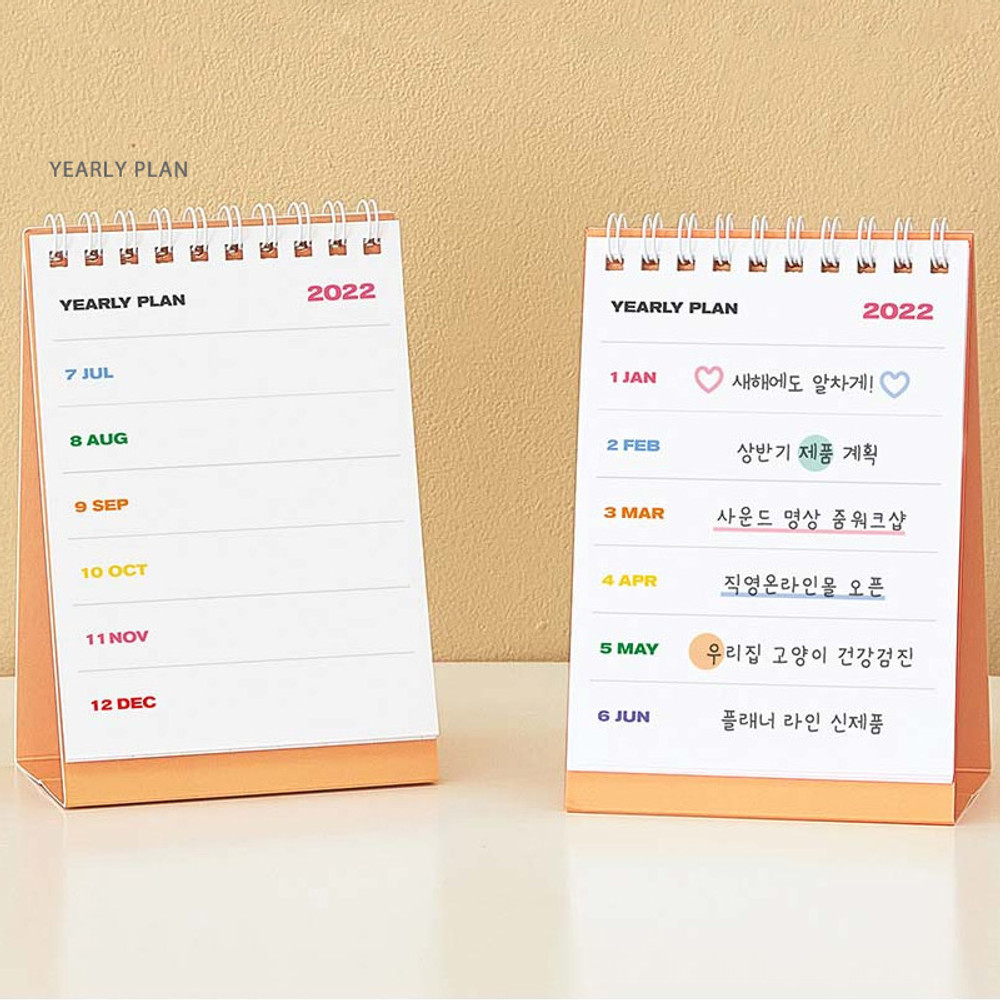 YEARLY PLAN
YEARLY PLAN 2022
7 JUL
8 AUG
9 SEP
10 OCT
11 NOV
12 DEC
YEARLY PLAN 2022
1 JAN 새해에도 알차게!
2 FEB 상반기 제품 계획
3 MAR 사운드 명상 줌워크샵
4 APR 직영온라인몰 오픈
5 MAY 우리집 고양이 건강검진
6 JUN 플래너 라인 신제품